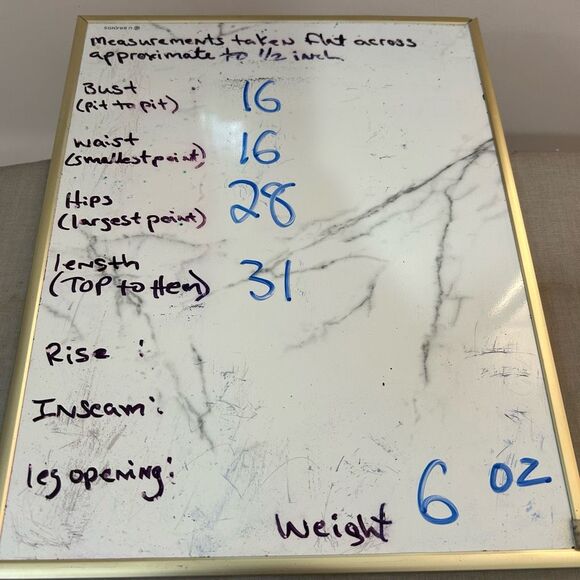 measurements taken flat across
approximate to 1/2 inch
Bust 16
(pit to pit)
waist 16
(smallest point)
Hips 28
(largest point)
length 31
(TOP to Hem)
Rise :
Inseam:
leg opening:
Weight 6 oz